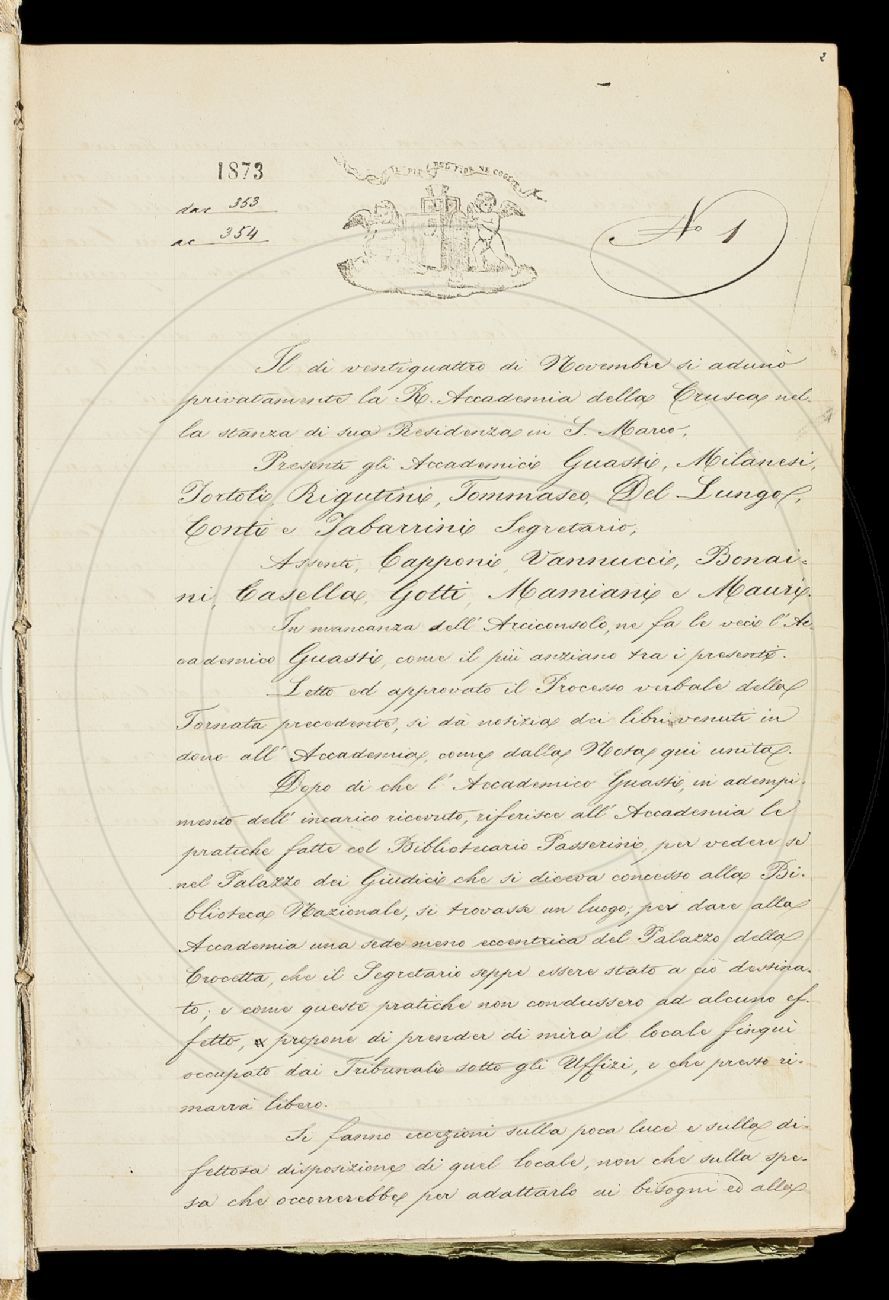 2
1873
dar 353
ac 354
No 1
Il di ventiquattro di Novembre si adunò
privatamente la R. Accademia della Crusca nel-
la stanza di sua Residenza in S. Marco.
Presenti gli Accademici Guasti, Milanesi,
Tortoli, Rigutini, Tommaseo, Del Lungo,
Conti e Tabarrini Segretario,
Assenti, Capponi, Vannucci, Bonai-
ni, Casella, Gotti, Mamiani e Mauri.
In mancanza dell' Arciconsolo, ne fa le veci l' Ac-
cademico Guasti, come il più anziano tra i presenti.
Letto ed approvato il Processo verbale della
Tornata precedente, si dà notizia dei libri venuti in
dono all' Accademia, come dalla Nota qui unita.
Dopo di che l' Accademico Guasti, in adempi-
mento dell' incarico ricevuto, riferisce all' Accademia le
pratiche fatte col Bibliotecario Passerini, per vedere se
nel Palazzo dei Giudici che si diceva concesso alla Bi-
blioteca Nazionale, si trovasse un luogo, per dare alla
Accademia una sede meno eccentrica del Palazzo della
Crocetta, che il Segretario seppe essere stato a ciò destina-
to; e come queste pratiche non condussero ad alcuno ef-
fetto, propone di prender di mira il locale finqui
occupato dai Tribunali sotto gli Uffizi, e che presso ri-
marrà libero.
Si fanno eccezioni sulla poca luce e sulla di-
fettosa disposizione di quel locale, non che sulla spe-
sa che occorrerebbe per adattarlo ai bisogni ed alla